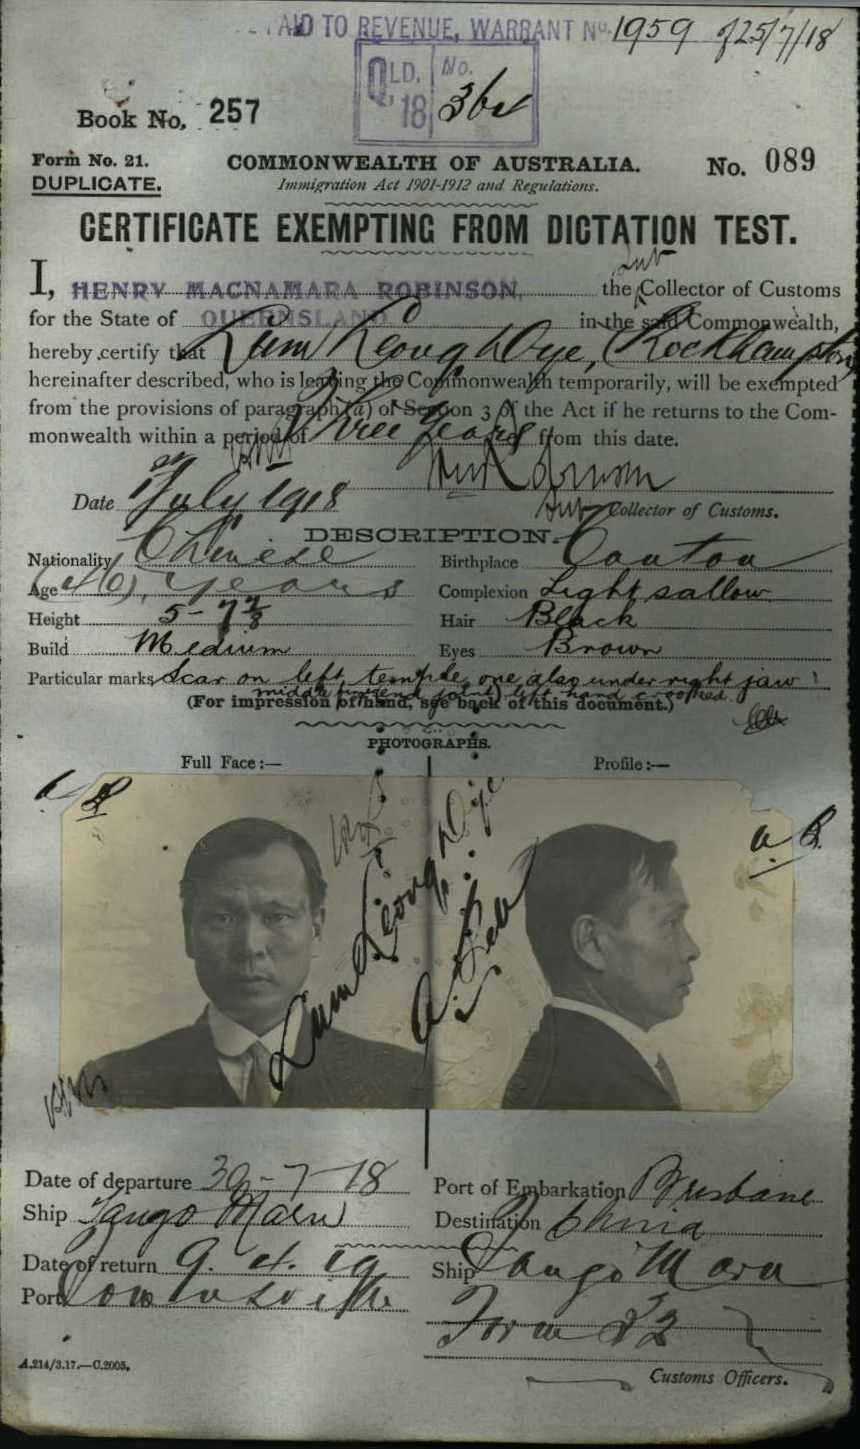 PAID TO REVENUE, WARRANT No. 1959 of 25/7/18
QLD. No.
'18 362
Book No. 257
Form No. 21. COMMONWEALTH OF AUSTRALIA. No. 089
DUPLICATE. Immigration Act 1901-1912 and Regulations.
CERTIFICATE EXEMPTING FROM DICTATION TEST.
Sub
I, HENRY MACNAMARA ROBINSON, the Collector of Customs
for the State of QUEENSLAND in the said Commonwealth,
hereby certify that Lum Leong Dye, (Rockhampton)
hereinafter described, who is leaving the Commonwealth temporarily, will be exempted
from the provisions of paragraph (a) of Section 3 of the Act if he returns to the Com-
monwealth within a period of Three Years from this date.
Date 1st July 1918 Sub Collector of Customs.
DESCRIPTION.
Nationality Chinese Birthplace Canton
Age (46) years Complexion Light sallow
Height 5-7 7/8 Hair Black
Build Medium Eyes Brown
Particular marks Scar on left temple, one also under right jaw
middle finger (end joint) left hand crooked
(For impression of hand, see back of this document.)
PHOTOGRAPHS.
Full Face:— Profile:—
Lum Leong Dye
Date of departure 30-7-18 Port of Embarkation Brisbane
Ship Tango Maru Destination China
Date of return 9.4.19 Ship Tango Maru
Port Townsville Form 32
A.214/3.17.—C.2005. Customs Officers.